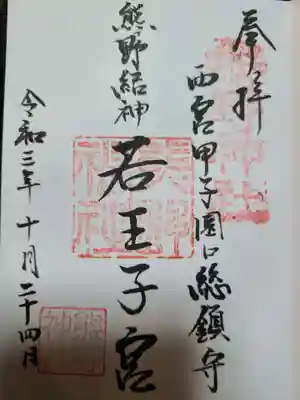 奉拝
西宮甲子園口総鎮守
熊野結神
若王子宮
令和三年十月二十四月